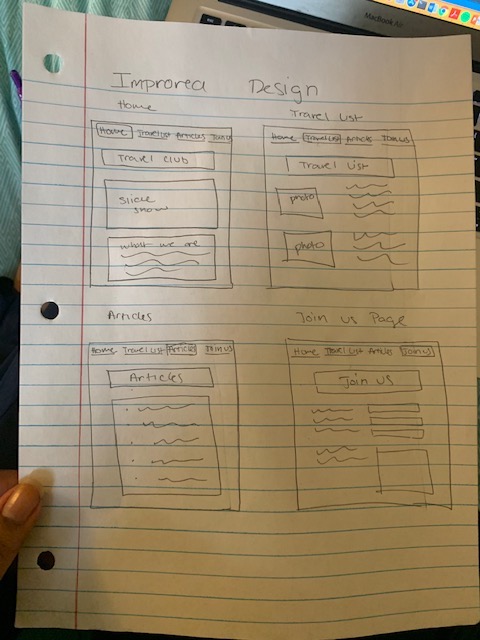 MacBook Air
Improrea Design
Home
Home Travel List Articles Join us
Travel Club
Slide
show
what we are
Travel List
Home Travel List Articles Join us
Travel List
photo
photo
Articles
Home Travel List Articles Join us
Articles
Join us Page
Home Travel List Articles Join us
Join us